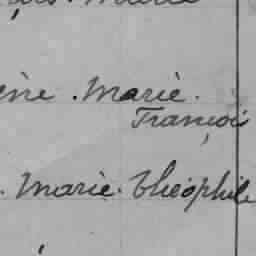 Marie
ène . Marie .
Françoi
. Marie . Théophile